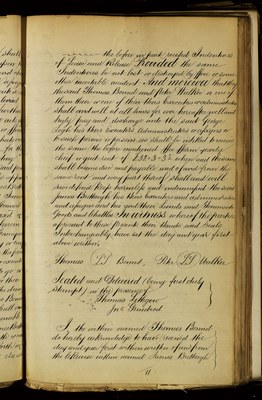 the before in part recited Indentures
of Lease and Release Provided the same
Indentures be not lost or destroyed by fire or some
other inevitable accident And moreover that they
the said Thomas Bonnel and Peter Walker or one of
them their or one of their heirs executors or administrators
shall and will at all times for ever hereafter well and
truly pay and discharge unto the said
his heirs executors administrators or assigns or
to such person or persons as shall be entitled to receive
the same the before mentioned
chief or quit rent of £33-3-3½ when and the same
shall become due and payable and of and from the
same rent and every part thereof shall and will
save defend keep harmless and indemnified the said
James his heirs executors and administrators
and assigns and his and their Lands and Tenements
Goods and Chattles In witness whereof the parties
aforesaid to these presents their hands and Seals
Interchangeably have set the day and year first
above written
Thomas LS Bonnel, Peter LS Walker
Sealed and Delivered (being first duly
Stampt) in the presence of
Thomas
Jno.
I the within named Thomas Bonnel
do hereby acknowledge to have received the
day and year first within written of and from
the likewise within named James